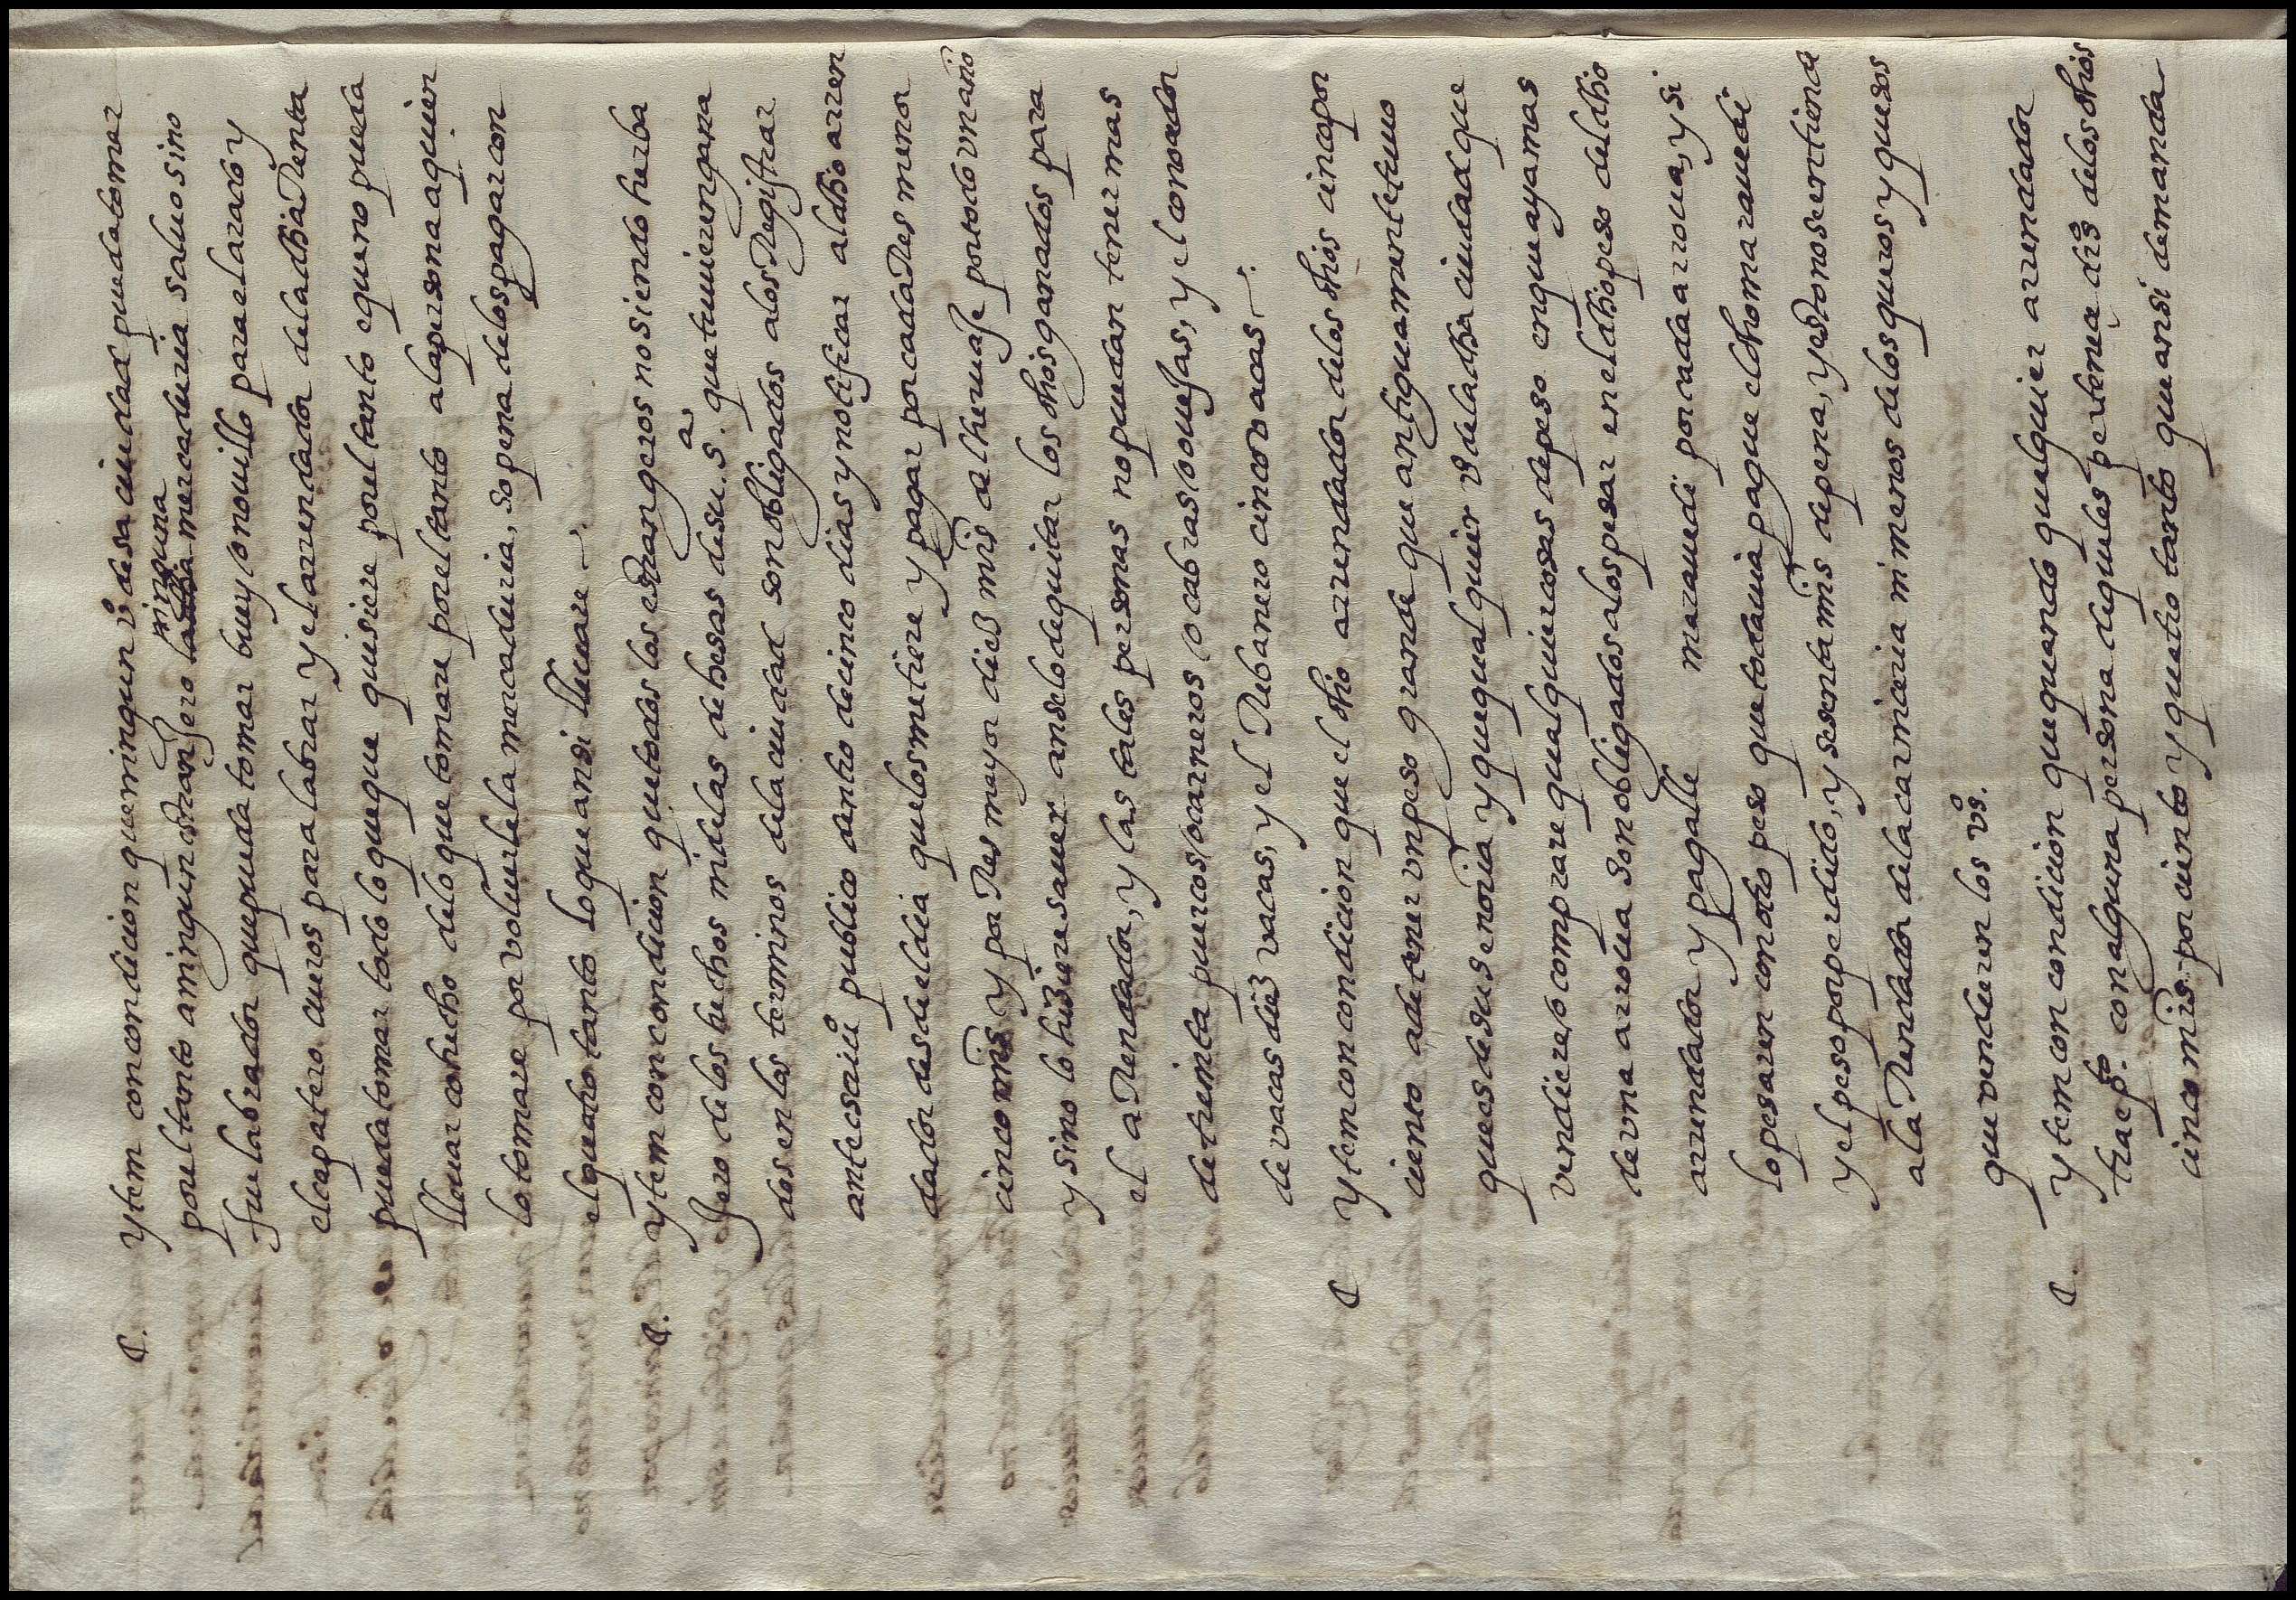 C. Ytem con condicion que ningun vº desa ciudad pueda tomar
ninguna
por el tanto a ningun estrangero mercaduria saluo si no
fue labrador que pueda tomar buey o nouillo para el arado y
el capatero cueros para labrar y el arrendador de la dha Renta
pueda tomar todo lo que que quisiere por el tanto e que no pueda
lleuar cohecho de lo que tomare por el tanto a la persona a quien
lo tomare por voluelle la mercaduria, so pena de los pagar con
el quatro tanto lo que ansi lleuare
C. Ytem con condicion que todos los estrangeros no siendo herba
a
jero de los hechos ni de las dehesas de su .S. que tuuieren gana
dos en los terminos de la ciudad son obligados a los Registrar
ante escriuº publico dentro de cinco dias y notificar al dho arren
dador desde el dia que los metiere y pagar por cada Res menor
cinco mrs y por Res mayor diez mrs de heruaje por todo vn año
y si no lo hiziere sauer anselo de quitar los dhos ganados para
el aRendador, y las tales personas no puedan tener mas
de treinta puercos o carneros o cabras o ouejas, y el conoador
de vacas diez vacas, y el Rebañero cinco vacas
C Ytem con condicion que el dho arrendador de los dhos cinco por
ciento a de tener vn peso grande que antiguamente tuuo
que es de su senoria y que qualquier vº de la dha ciudad que
vendiere o comprare qualquier cosas de peso en que aya mas
de vna arroua son obligados a los pesar en el dho peso del dho
arrendador y pagalle maravedi por cada arroua, y si
lo pesaren con otro peso que todauia pague el dho marauedi
y el peso por perdido, y sesenta mrs de pena, y esto no se entienda
a la Renta del de la carniceria ni menos de los quesos y quesos
que venderen los vºs.
C. Ytem con condicion que quando qualquier arrendador
trae pto. con alguna persona de quel es pertenece drº de los dhos
cinco mrs por ciento y quatro tanto que ansi demanda